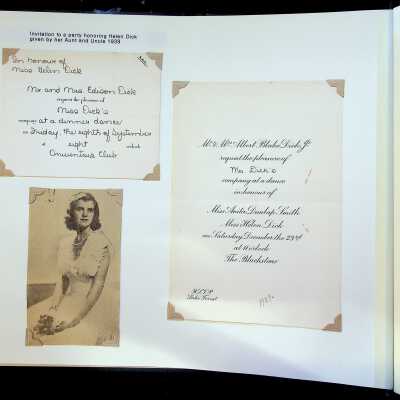 Invitation to a party honoring Helen Dick
given by her Aunt and Uncle 1939
In honour of
Miss Helen Dick
Mr and Mrs. Edison Dick
request the pleasure of
Miss Dick's
company at a dinner dance
on Friday, the eighth of September
at eight o'clock
Onwentsia Club
Mr. & Mrs. Albert Blake Dick, Jr.
request the pleasure of
Miss Dick's
company at a dance
in honour of
Miss Anita Dunlap Smith
Miss Helen Dick
on Saturday, December the 23rd
at ten o'clock
The Blackstone
R.S.V.P.
Lake Forest
1939